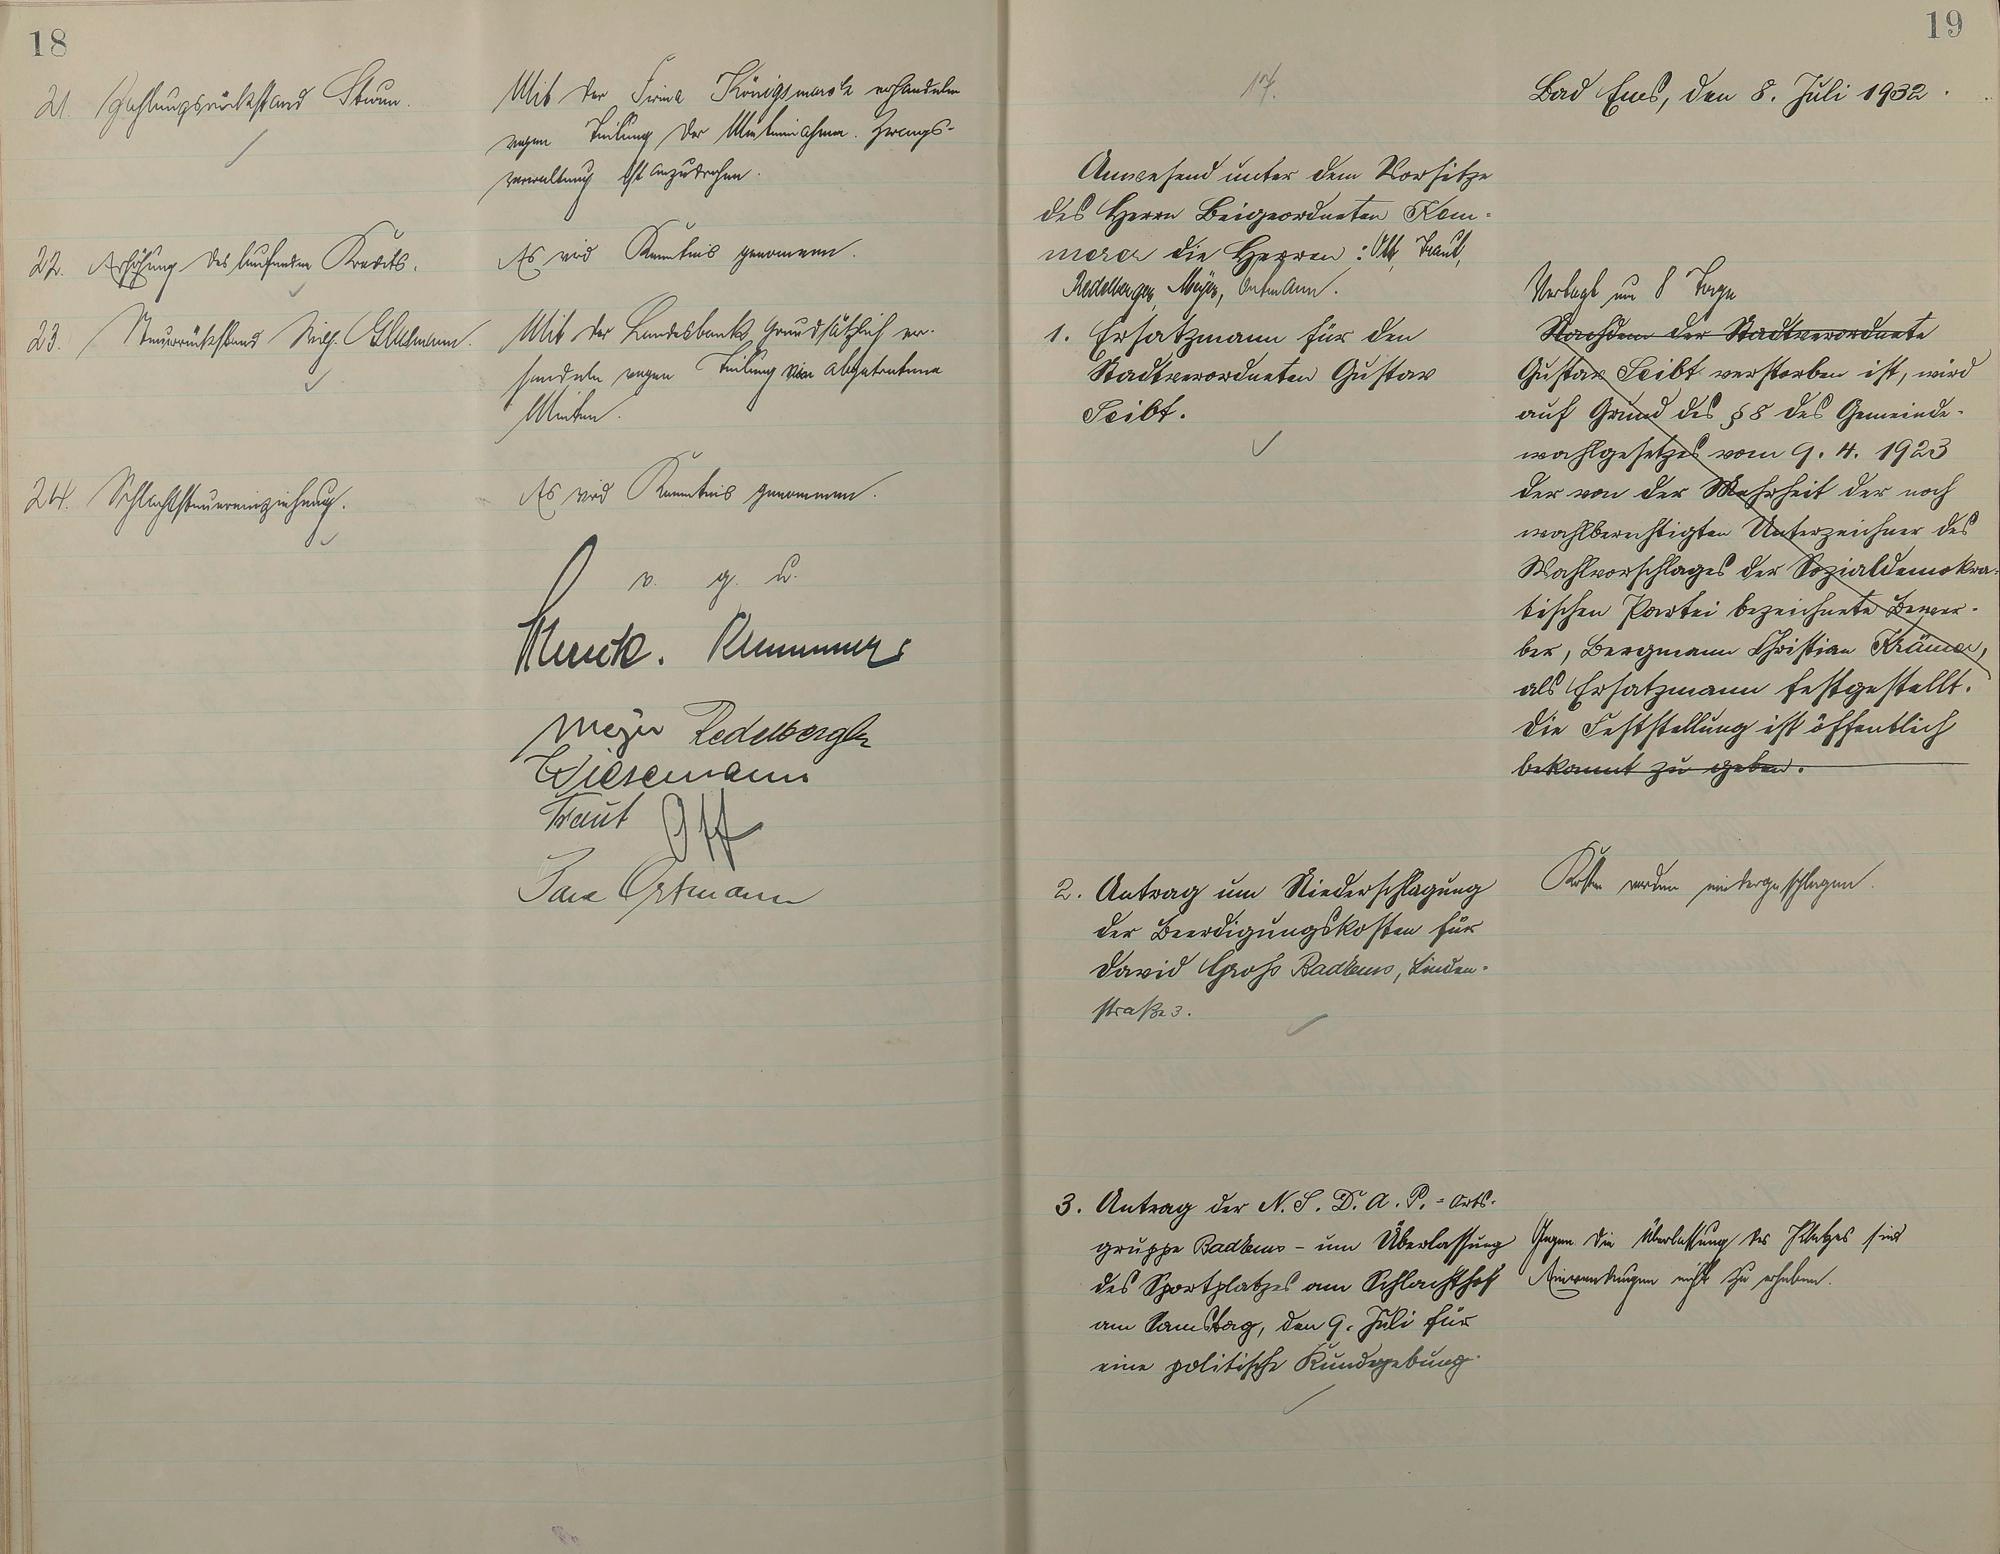 18
21. Zahlungsrückstand
Mit der Firma Königsmark verhandeln
wegen Teilung der Mieteinnahmen. Zwangs-
verwaltung ist anzudrohen.
22. Erhöhung des laufenden Kredits.
Es wird Kenntnis genommen.
23. Steuerrückstand
Mit der Landesbank grundsätzlich ver-
handeln wegen Teilung der abgetretenen
Mieten.
24. Schlachtsteuereinziehung.
Es wird Kenntnis genommen.
v. g. u.
Meyer Redelberger
Wiesemann
Traut Ott
Ortmann
19
17.
Bad Ems, den 8. Juli 1932.
Anwesend unter dem Vorsitze
des Herrn Beigeordneten Kom-
merer die Herren: Ott, Traut,
Redelberger, Meyer, Ortmann.
1. Ersatzmann für den
Stadtverordneten Gustav
Seibt.
Vertagt um 8 Tage
Nachdem der Stadtverordnete
Gustav Seibt verstorben ist, wird
auf Grund des § 8 des Gemeinde-
wahlgesetzes vom 9. 4. 1923
der von der Mehrheit der noch
wahlberechtigten Unterzeichner des
Wahlvorschlages der Sozialdemokra-
tischen Partei bezeichnete Bewer-
ber, Bergmann Christian Krämer,
als Ersatzmann festgestellt.
Die Feststellung ist öffentlich
bekannt zu geben.
2. Antrag um Niederschlagung
der Beerdigungskosten für
David Groß Bad Ems, Linden-
straße 3.
Kosten werden niedergeschlagen.
3. Antrag der N.S.D.A.P.=Orts-
gruppe Bad Ems – um Überlassung
des Sportplatzes am Schlachthof
am Samstag, den 9. Juli für
eine politische Kundgebung.
Gegen die Überlassung des Platzes sind
Einwendungen nicht zu erheben.